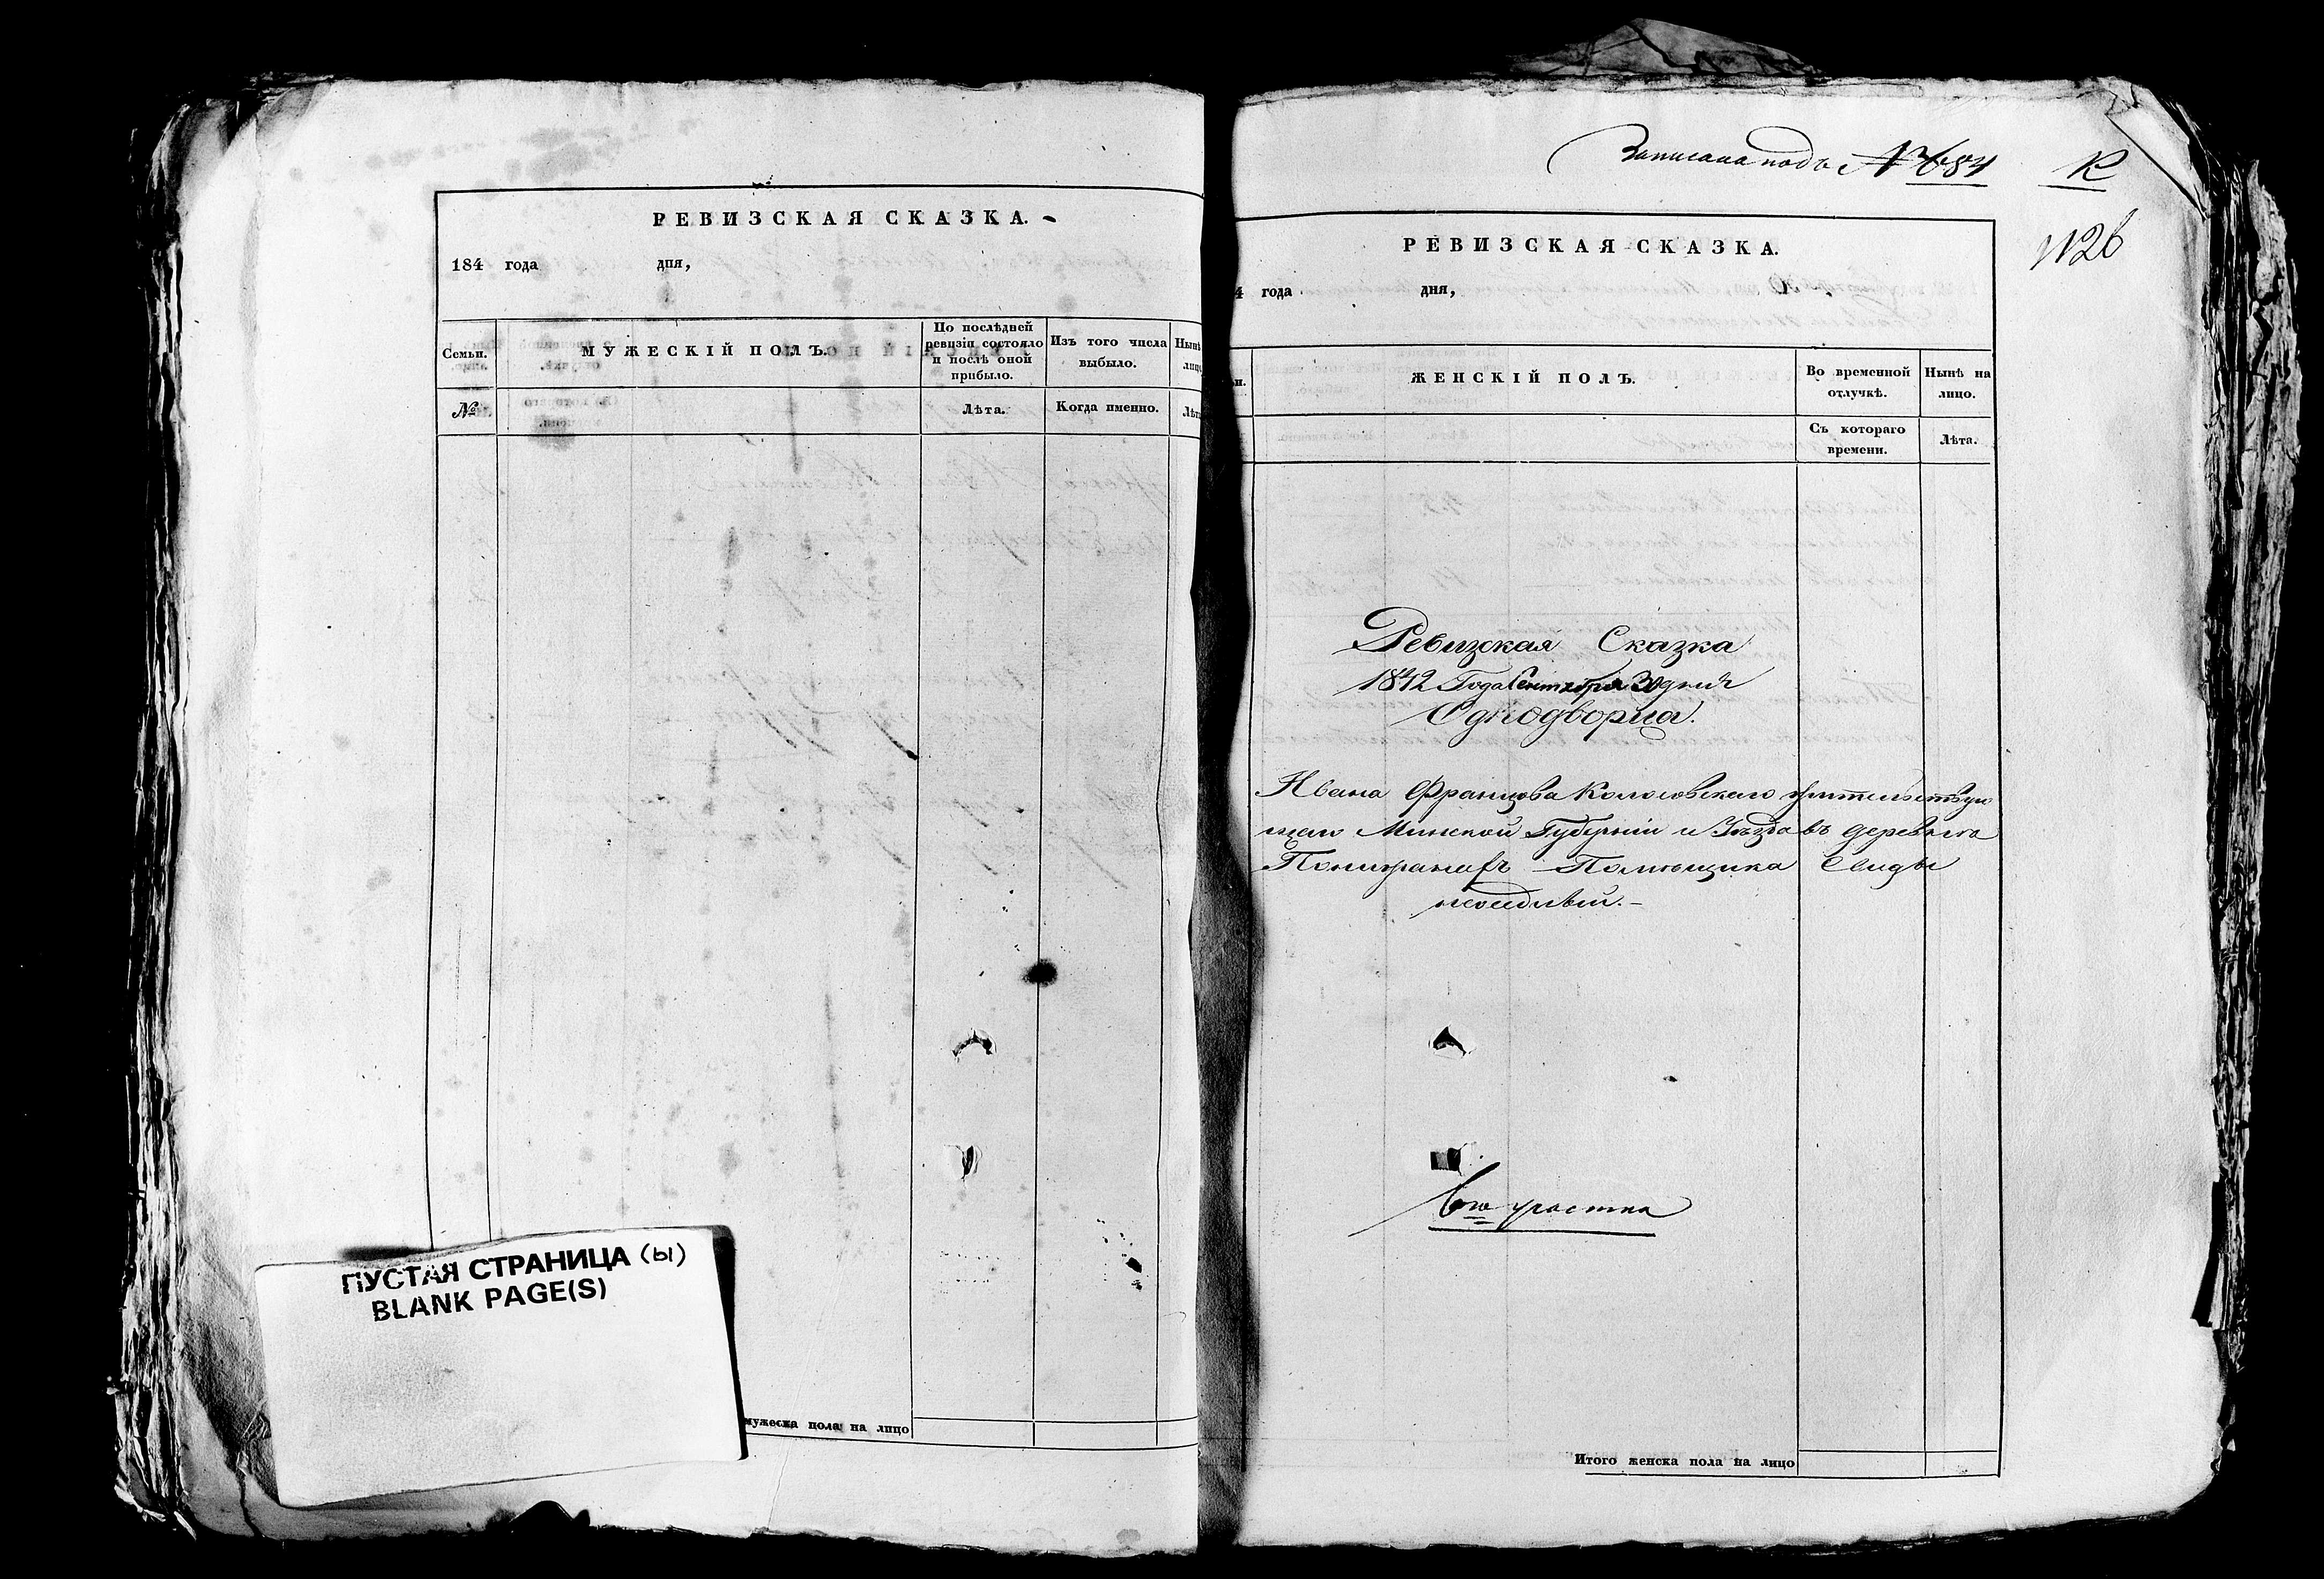 РЕВИЗСКАЯ СКАЗКА.
184 года дня,
Семьи.
МУЖЕСКІЙ ПОЛЪ.
По послѣдней ревизіи состояло и послѣ оной прибыло.
Изъ того числа выбыло.
Нынѣ
№
Лѣта.
Когда именно.
Лѣт
ПУСТАЯ СТРАНИЦА (ы)
BLANK PAGE(S)
мужеска пола на лицо
Записана подъ № 684
К
РЕВИЗСКАЯ СКАЗКА.
4 года дня,
ЖЕНСКІЙ ПОЛЪ.
Во временной отлучкѣ.
Нынѣ на лицо.
Съ котораго времени.
Лѣта.
Ревизская Сказка
1842 Года Сентября 30 дня
Однодворца.
Ивана Францова жительствую
щаго Минской Губерніи и Уѣзда въ деревьне
Помѣщика
6го участка
Итого женска пола на лицо